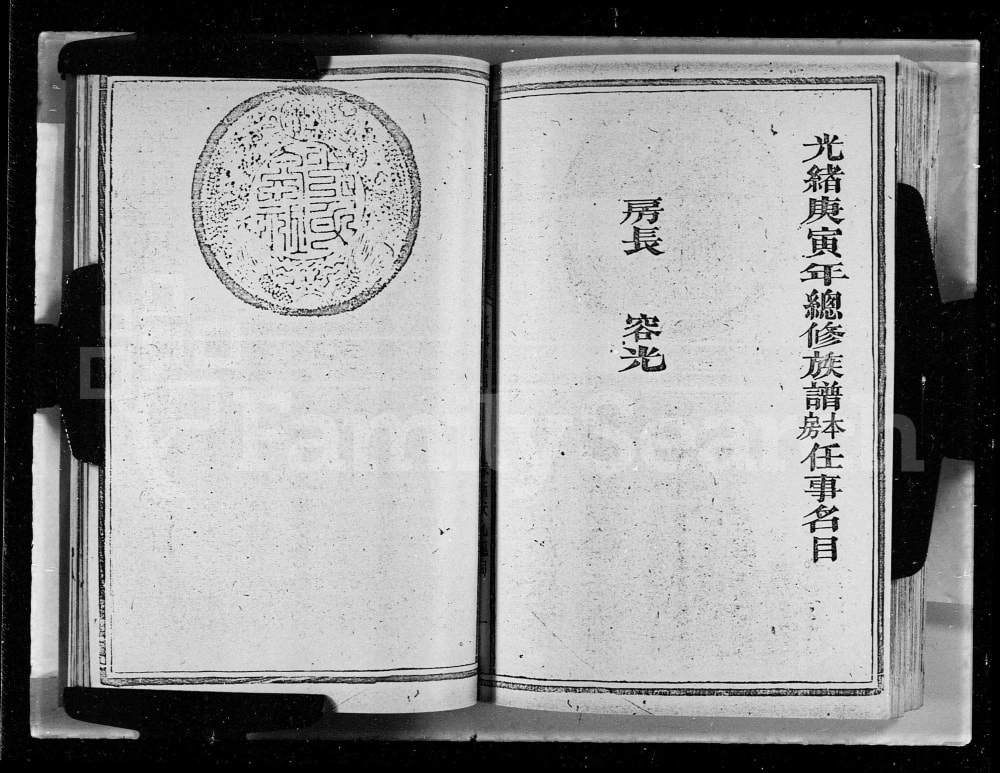 光緒庚寅年總修族譜本房任事名目
房長 容光
FamilySearch